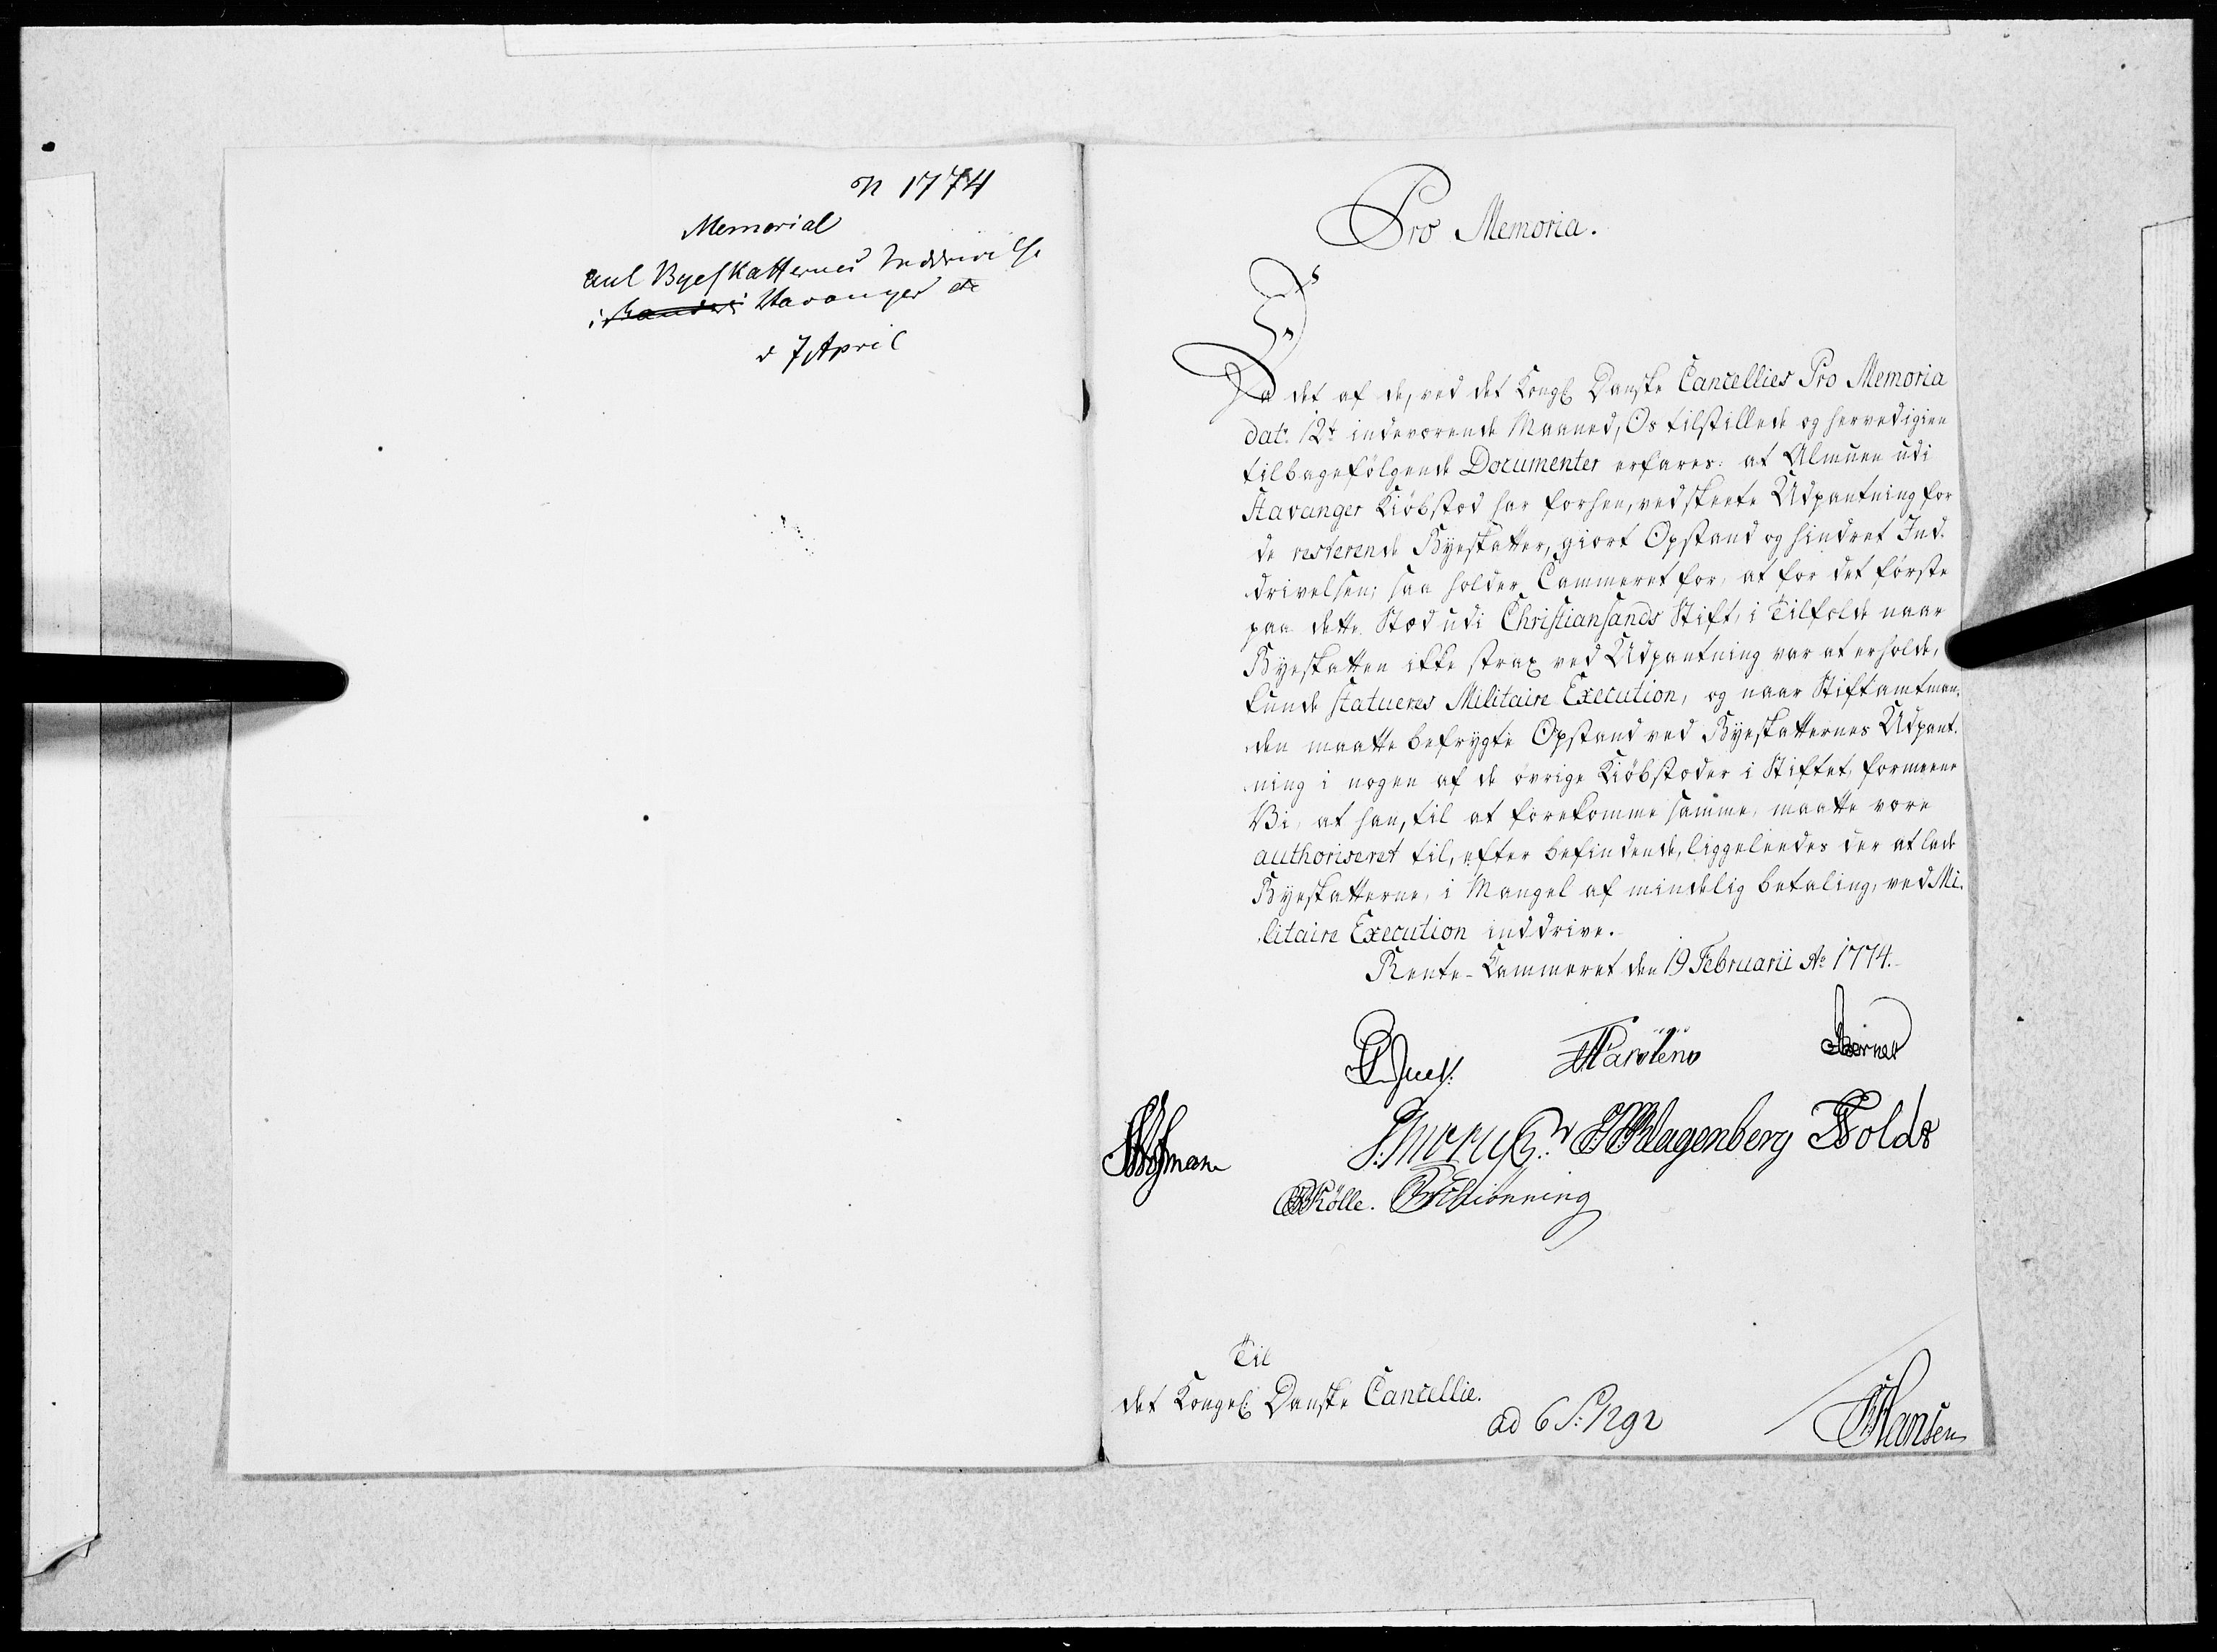 1774
Memorial
anl Byeskatternes Inddrivelse
i Stavanger etc
d 7 April
Pro Memoria.
Da det af de, ved det Kongl Danske Cancellies Pro Memoria
dat: 12t indeværende Maaned, Os tilstillede og herved igien
tilbagefölgende Documenter erfares: at Almuen udi
Stavanger Kiöbstæd har forhen, ved skeete Udpantning for
de resterende Byeskatter, giort Opstand og hindret Ind-
drivelsen; saa holder Cammeret for, at for det förste
paa dette Stæd udi Christiansands Stift, i Tilfælde naar
Byeskatten ikke strax ved Udpantning var at erholde,
kunde statueres Militaire Execution, og naar Stiftamtman-
den maatte befrygte Opstand ved Byeskatternes Udpant-
ning i nogen af de övrige Kiöbstæder i Stiftet, formeener
Vi, at han, til at forekomme samme, maatte være
authoriseret til, efter befindende, liggeleedes der at lade
Byeskatterne, i Mangel af mindelig betaling, ved Mi-
litaire Execution inddrive.
Rente-Kammeret den 19 Februarii Ao 1774.
Juel. Karstens
Hofman Klagenberg Holdt
Kölle. Schiönning
Til
det Kongel Danske Cancellie.
ad 6 S: 1292
Hansen